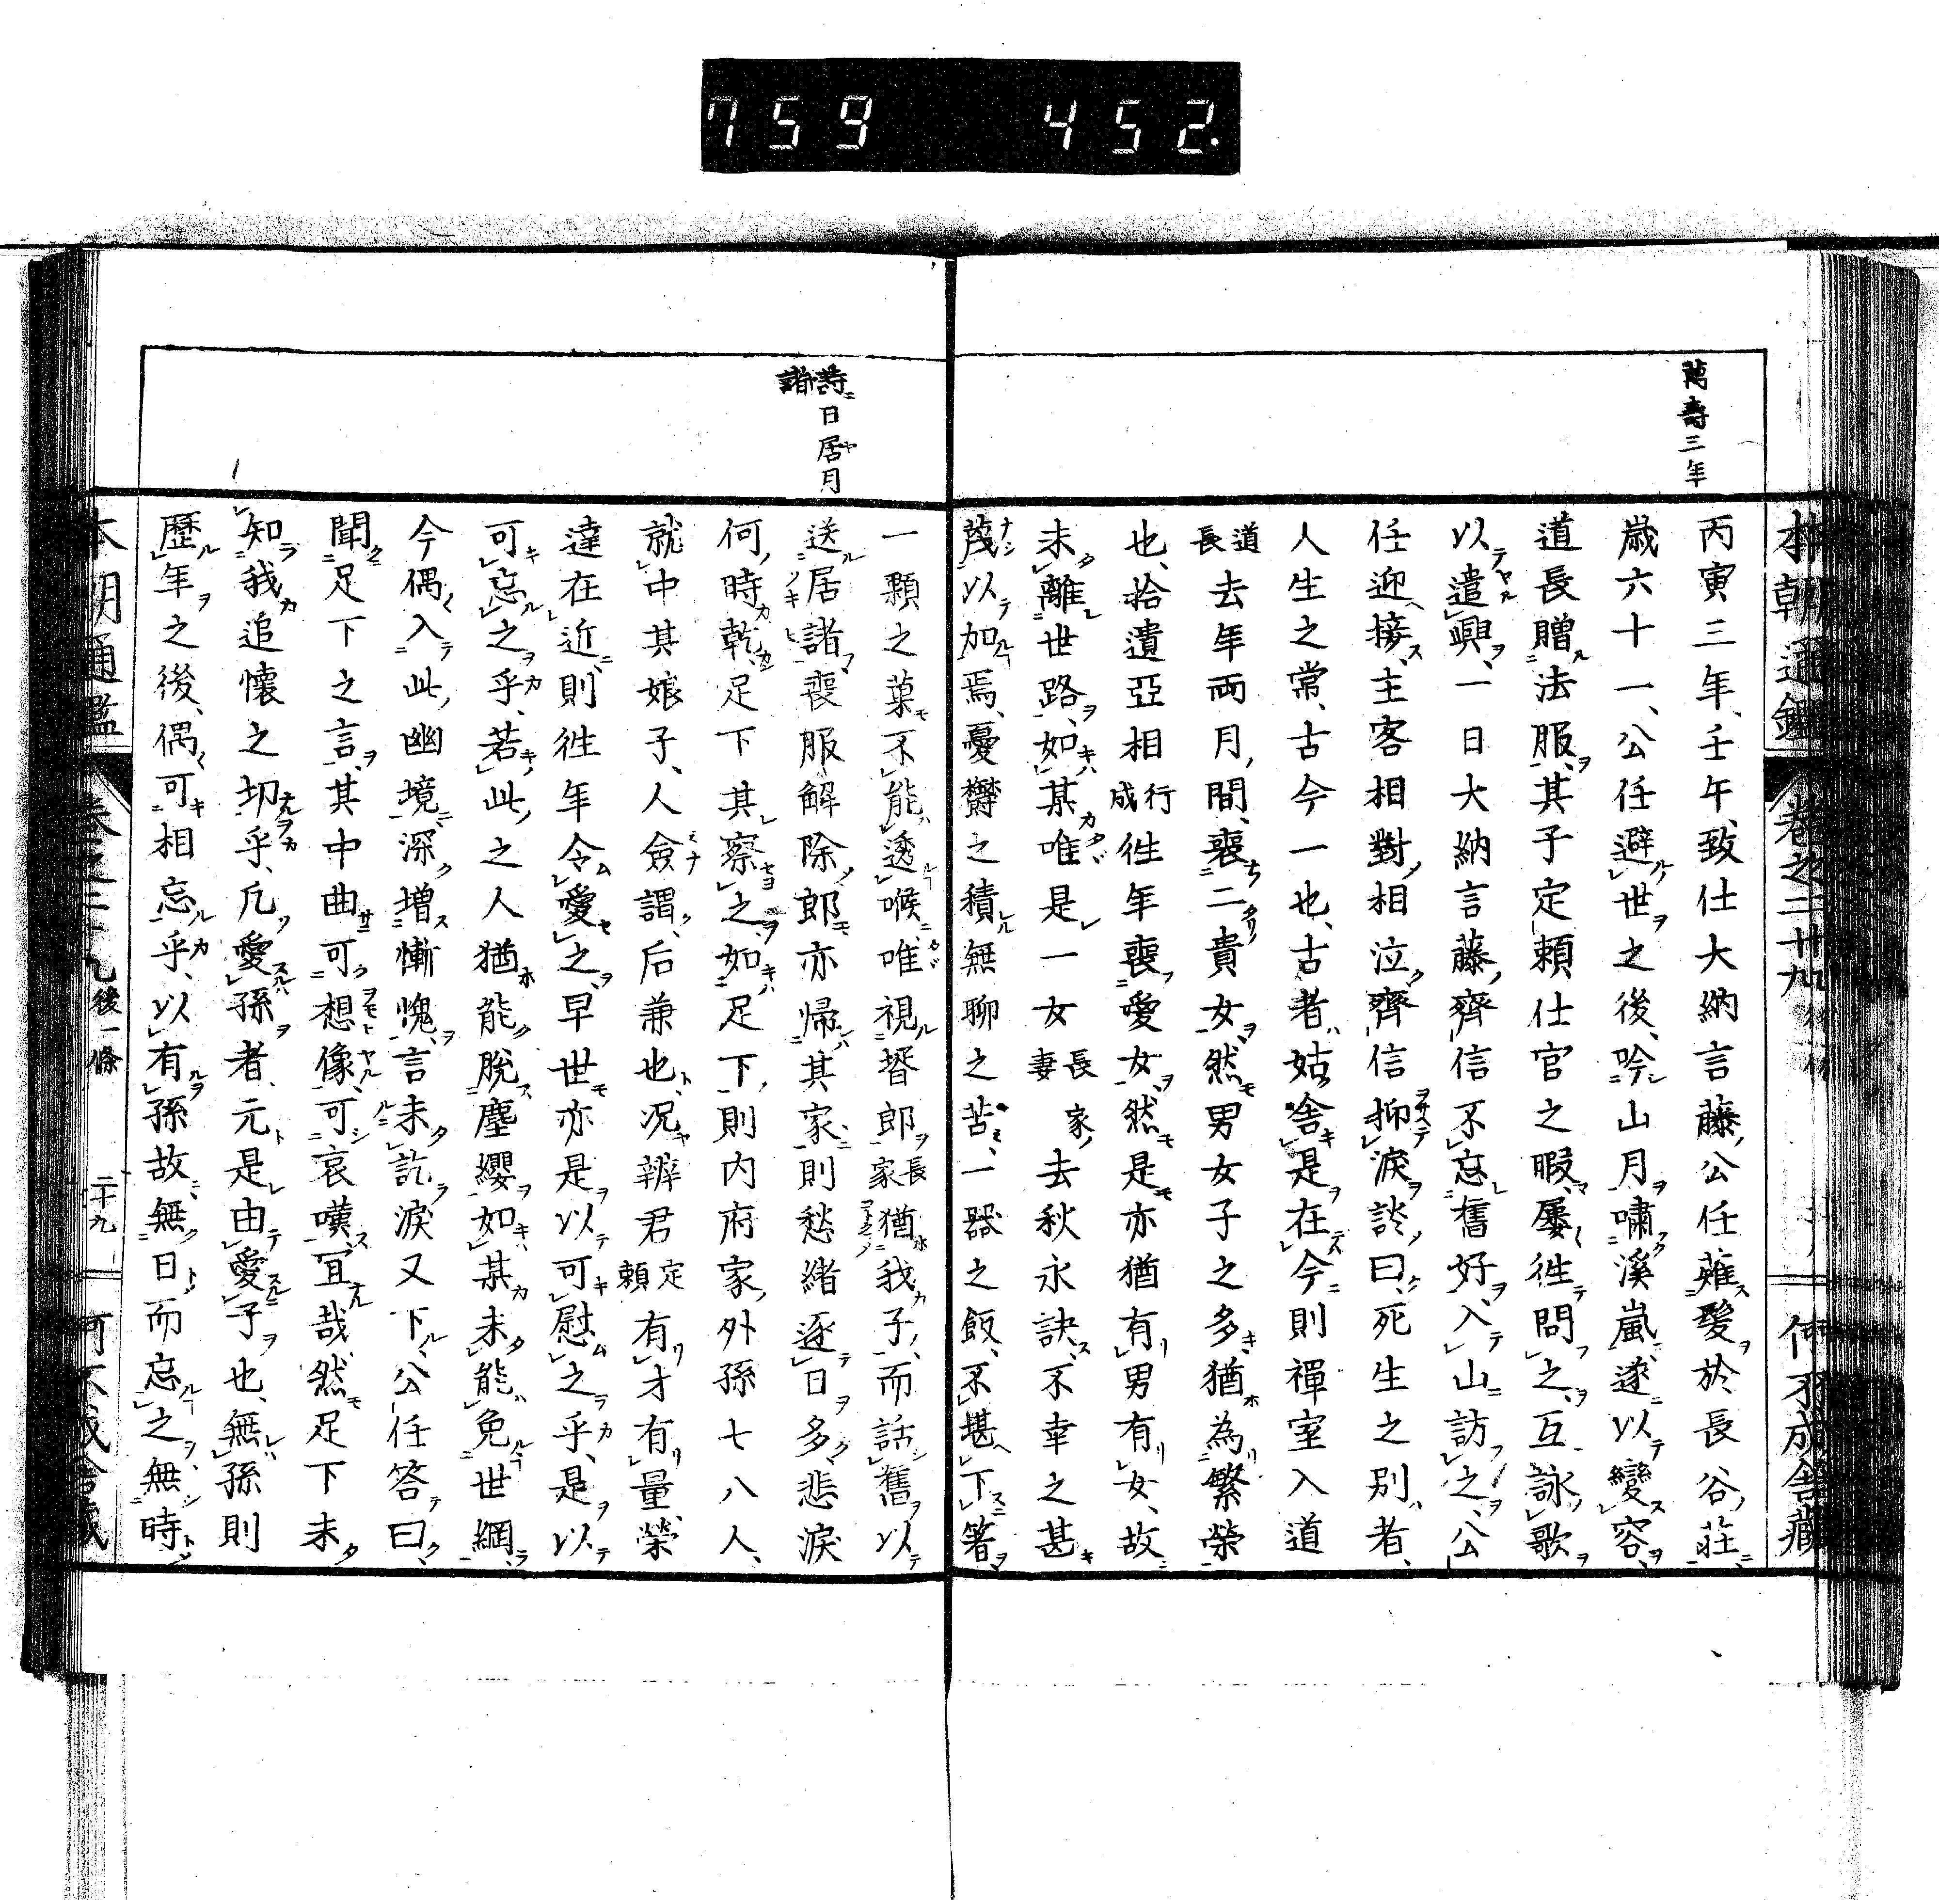 759 452.
本朝通鑑 卷之二十九 何不成舍藏
萬壽三年
丙寅三年、壬午、致仕大納言藤公任薙髮於長谷莊、
歲六十一、公任避世之後、吟山月嘯溪嵐、遂以變容、
道長贈法服、其子定賴仕官之暇、屢徃問之、互詠歌
以遣興、一日大納言藤齊信不忘舊好、入山訪之、公
任迎接、主客相對、相泣、齊信抑淚談曰、死生之別者、
人生之常、古今一也、古者姑舍是、在今則禪室入道
道長去年兩月間、喪二貴女、然男女子之多、猶為繁榮
也、拾遺亞相行成徃年喪愛女、然是亦猶有男有女、故
未離世路、如某唯是一女長家妻去秋永訣、不幸之甚
蔑以加焉、憂欝之積、無聊之苦、一器之飯、不堪下箸、
一顆之菓不能透喉、唯視壻郎長家猶我子、而話舊以
詩日居月諸
送居諸、喪服解除、郎亦歸其家、則愁緒逐日多、悲淚
何時乾、足下其察之、如足下、則內府家外孫七八人、
就中其娘子、人僉謂、后兼也、况辨君定賴有才有量、榮
達在近、則徃年令愛之早世亦是以可慰之乎、是以
可忘之乎、若此之人猶能脫塵纓、如某未能免世網、
今偶入此幽境、深增慚愧、言未訖淚又下、公任答曰、
聞足下之言、其中曲可想像、可哀嘆、宜哉、然足下未
知我追懷之切乎、凡愛孫者、元是由愛子也、無孫則
歷年之後、偶可相忘乎、以有孫故、無日而忘之、無時
本朝通鑑 卷之二十九 後一條 二十九 何不成舍藏